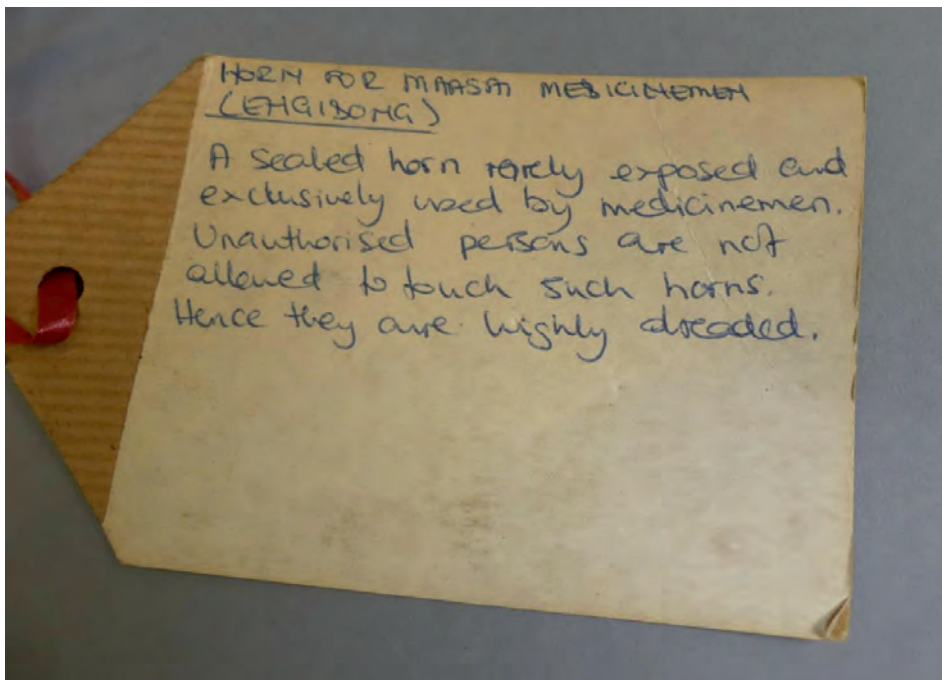 HORN FOR MAASAI MEDICINEMEN
(ENGIDONG)
A sealed horn rarely exposed and
exclusively used by medicinemen.
Unauthorised persons are not
allowed to touch such horns.
Hence they are highly dreaded.